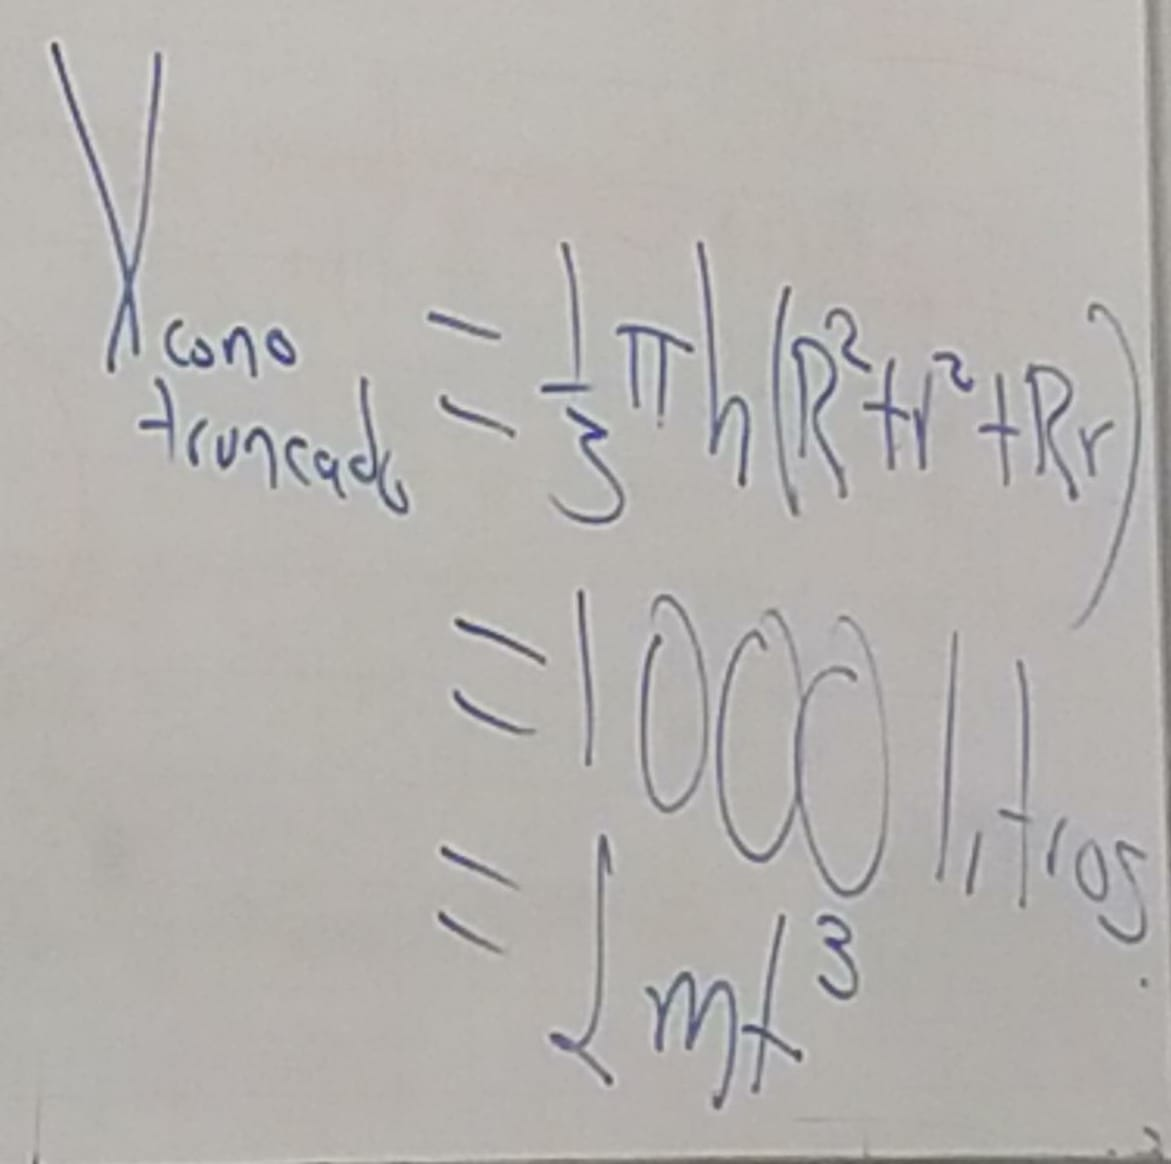 V cono truncado = 1/3 π h (R² + r² + Rr)
= 1000 litros.
= 1 mt³